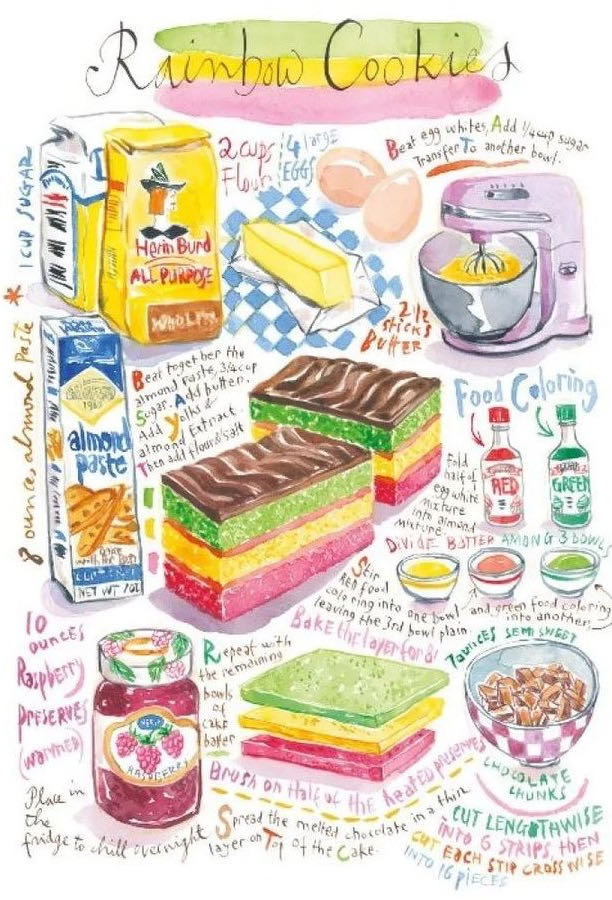 Rainbow Cookies
* 1 CUP SUGAR
2 cups
Flour
4 large
EGGS
Beat egg whites, Add 1/4 cup sugar
Transfer To another bowl.
Herin Burd
ALL PURPOSE
2 1/2
STICKS
BUTTER
8 ounces almond Paste
almond
paste
NET WT 7OZ
Beat together the
almond Paste, 3/4 cup
Sugar. Add butter.
Add yolks &
almond Extract.
Then add flour & salt
Food Coloring
RED
GREEN
Fold
half of
egg white
mixture
into almond
mixture.
DIVIDE BATTER AMONG 3 BOWLS
Stir
RED food
coloring into one bowl
leaving the 3rd bowl plain
and green food coloring
into another!
Bake the layer for 8!
10
ounces
Raspberry
Preserves
(warmed)
RASPBERRY
Repeat with
the remaining
bowls
of
cake
batter
7 OUNCES SEMI SWEET
CHOCOLATE
CHUNKS
Brush on Half of the heated preserves
Place in
the
fridge to chill overnight
Spread the melted chocolate in a thin
layer on Top of the Cake.
CUT LENGTHWISE
INTO 6 STRIPS THEN
CUT EACH STIP CROSSWISE
INTO 16 PIECES